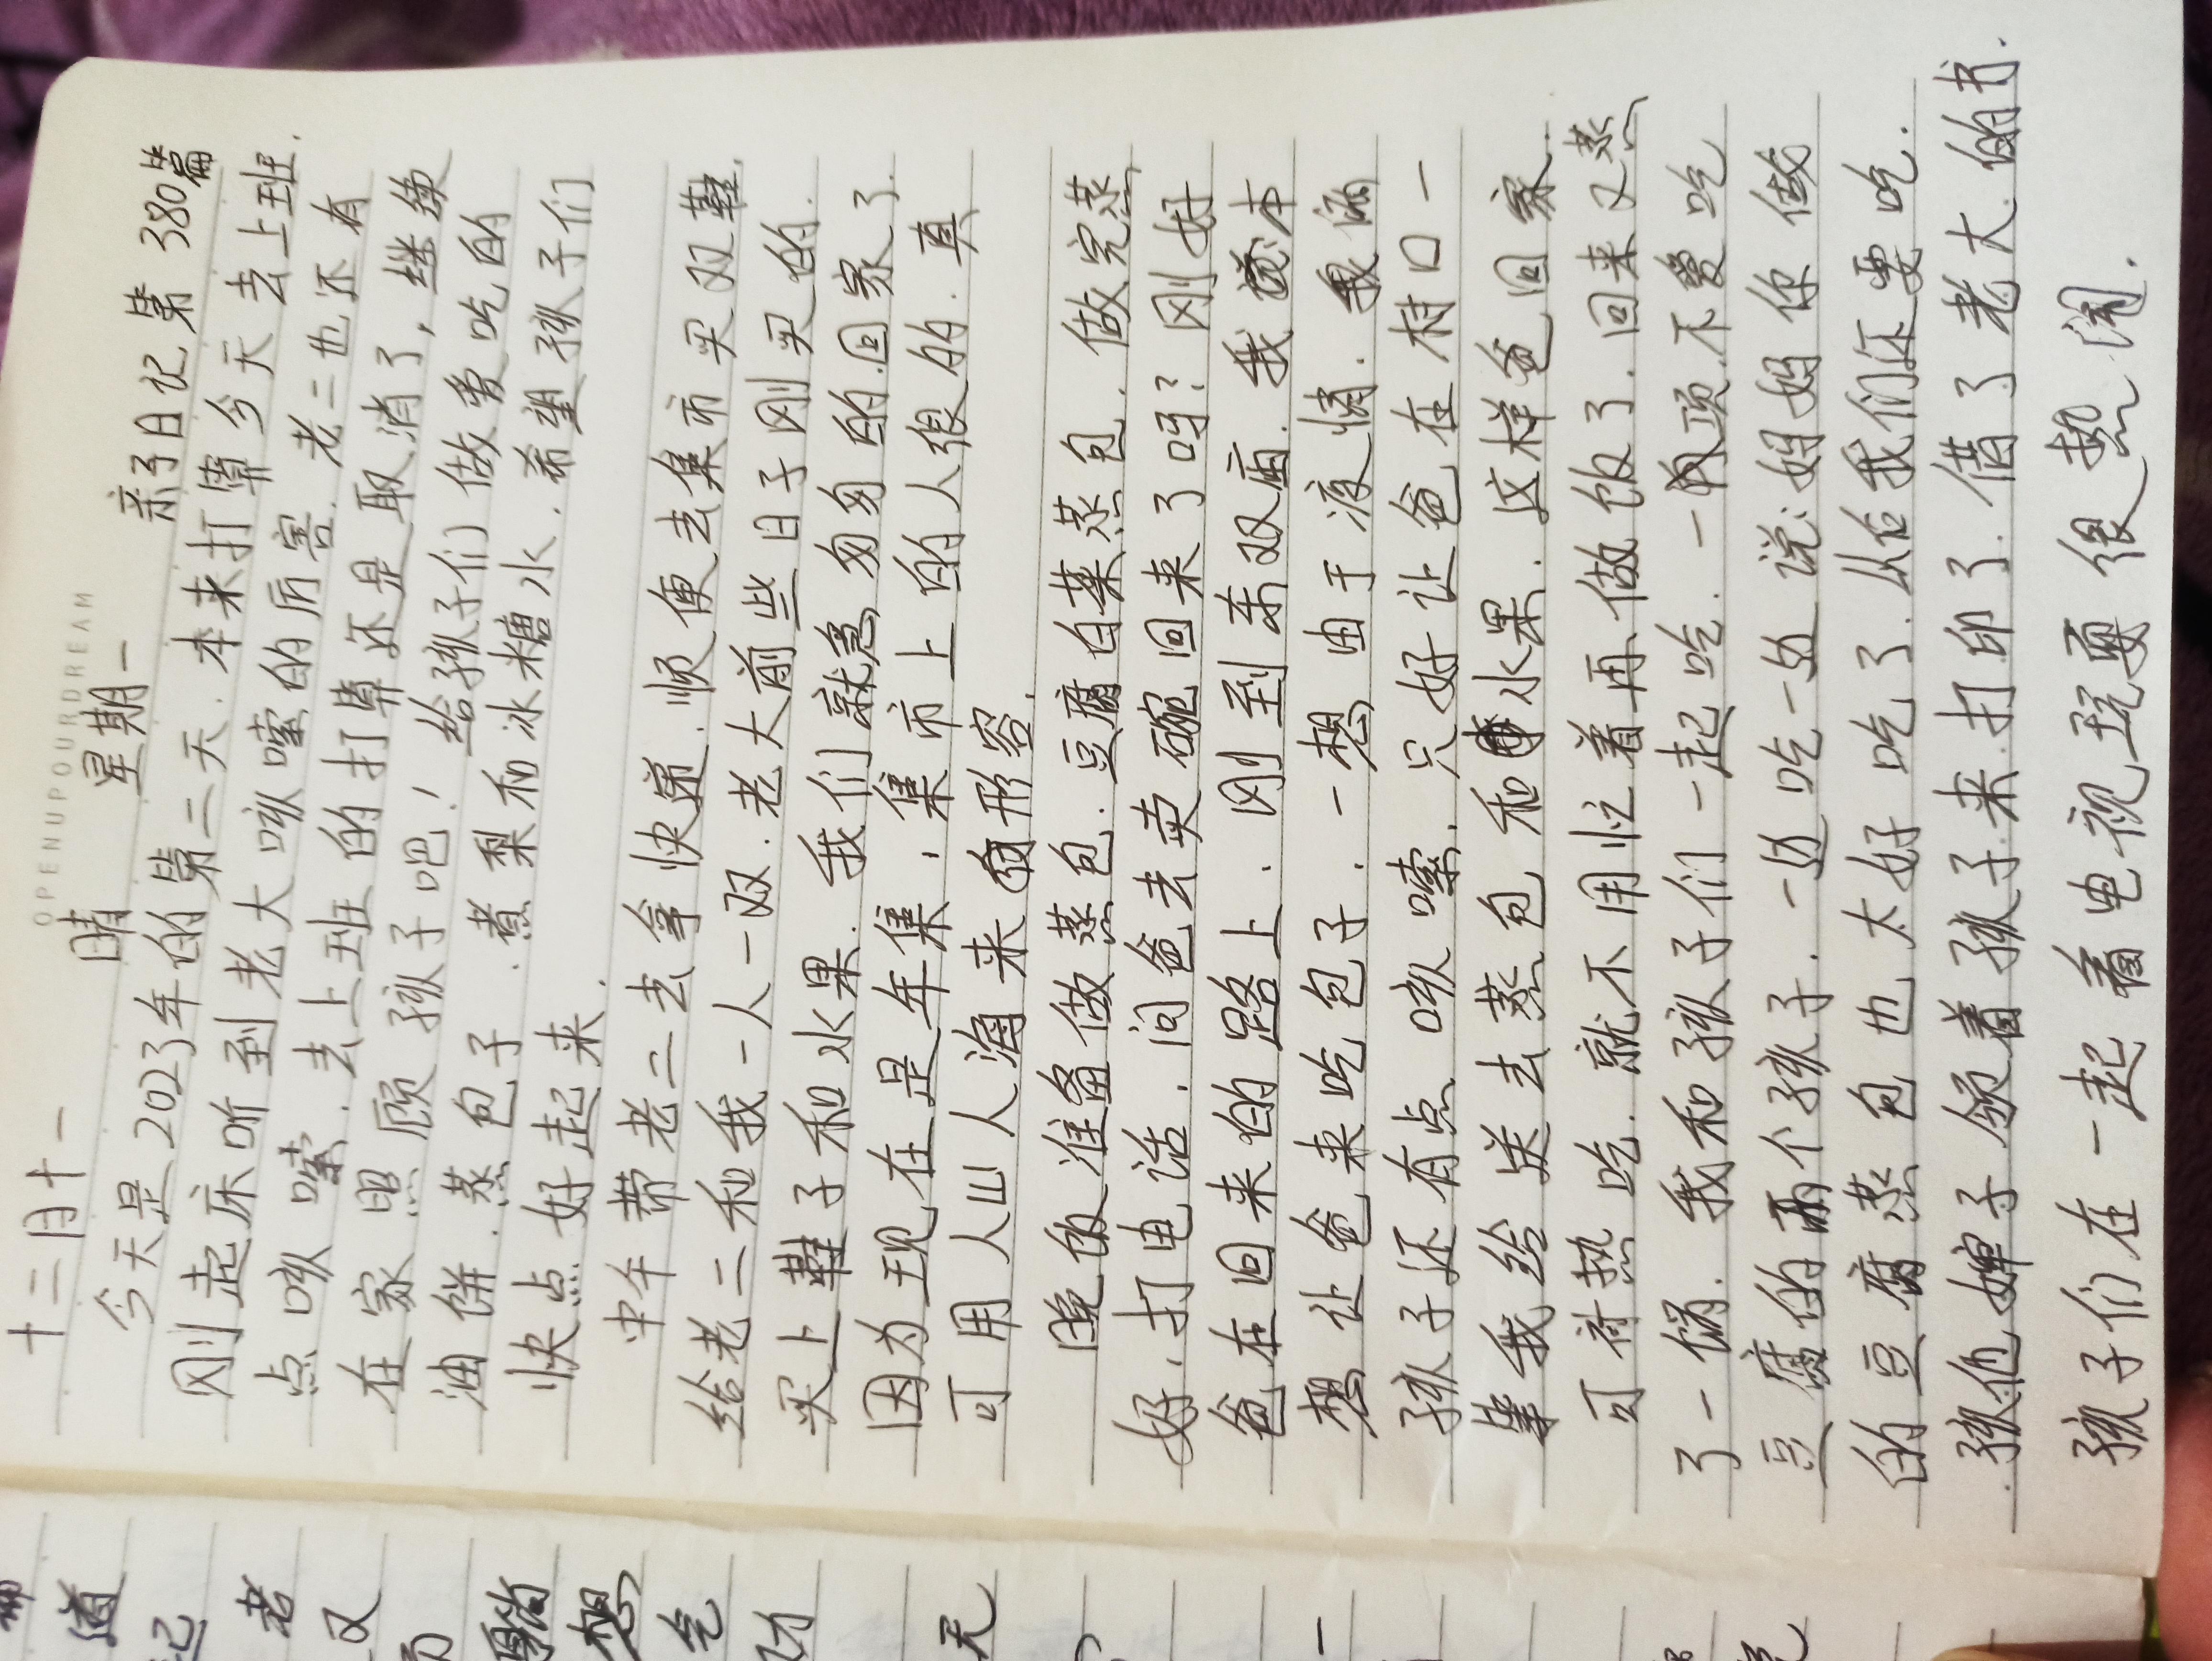 OPENUPOURDREAM
十二月十一 晴 星期一 亲子日记第380篇
今天是2023年的第二天.本来打算今天去上班.
刚起床听到老大咳嗽的厉害.老二也还有
点咳嗽.去上班的打算还是取消了,继续
在家照顾孩子吧!给孩子们做爱吃的
油饼.蒸包子.煮梨和冰糖水.希望孩子们
快点好起来.
中午带老二去拿快递.顺便去集市买双鞋.
给老二和我一人一双.老大前些日子刚买的.
买上鞋子和水果.我们就急匆匆的回家了.
因为现在是年集,集市上的人很的.真
可用人山人海来形容.
晚饭准备做蒸包.豆腐白菜蒸包.做完蒸
好.打电话.问爸去卖碗回来了吗?刚好
爸在回来的路上.刚到东双庙.我说本
想让爸来吃包子.一想由于液情.我俩
孩子还有点咳嗽.只好让爸在村口一
等我给送去蒸包和水果.这样爸回家.
可衬热吃.就不用忙着再做饭了.回来又蒸
了一锅.我和孩子们一起吃.一项不爱吃
豆腐的两个孩子.一边吃一边说:妈妈你做
的豆腐蒸包也太好吃了.从后我们还要吃.
孩他婶子领着孩子来打印了.借了老大的书.
孩子们在一起看电视玩耍很热闹.
道
记
老
又
想
气
功
天
一